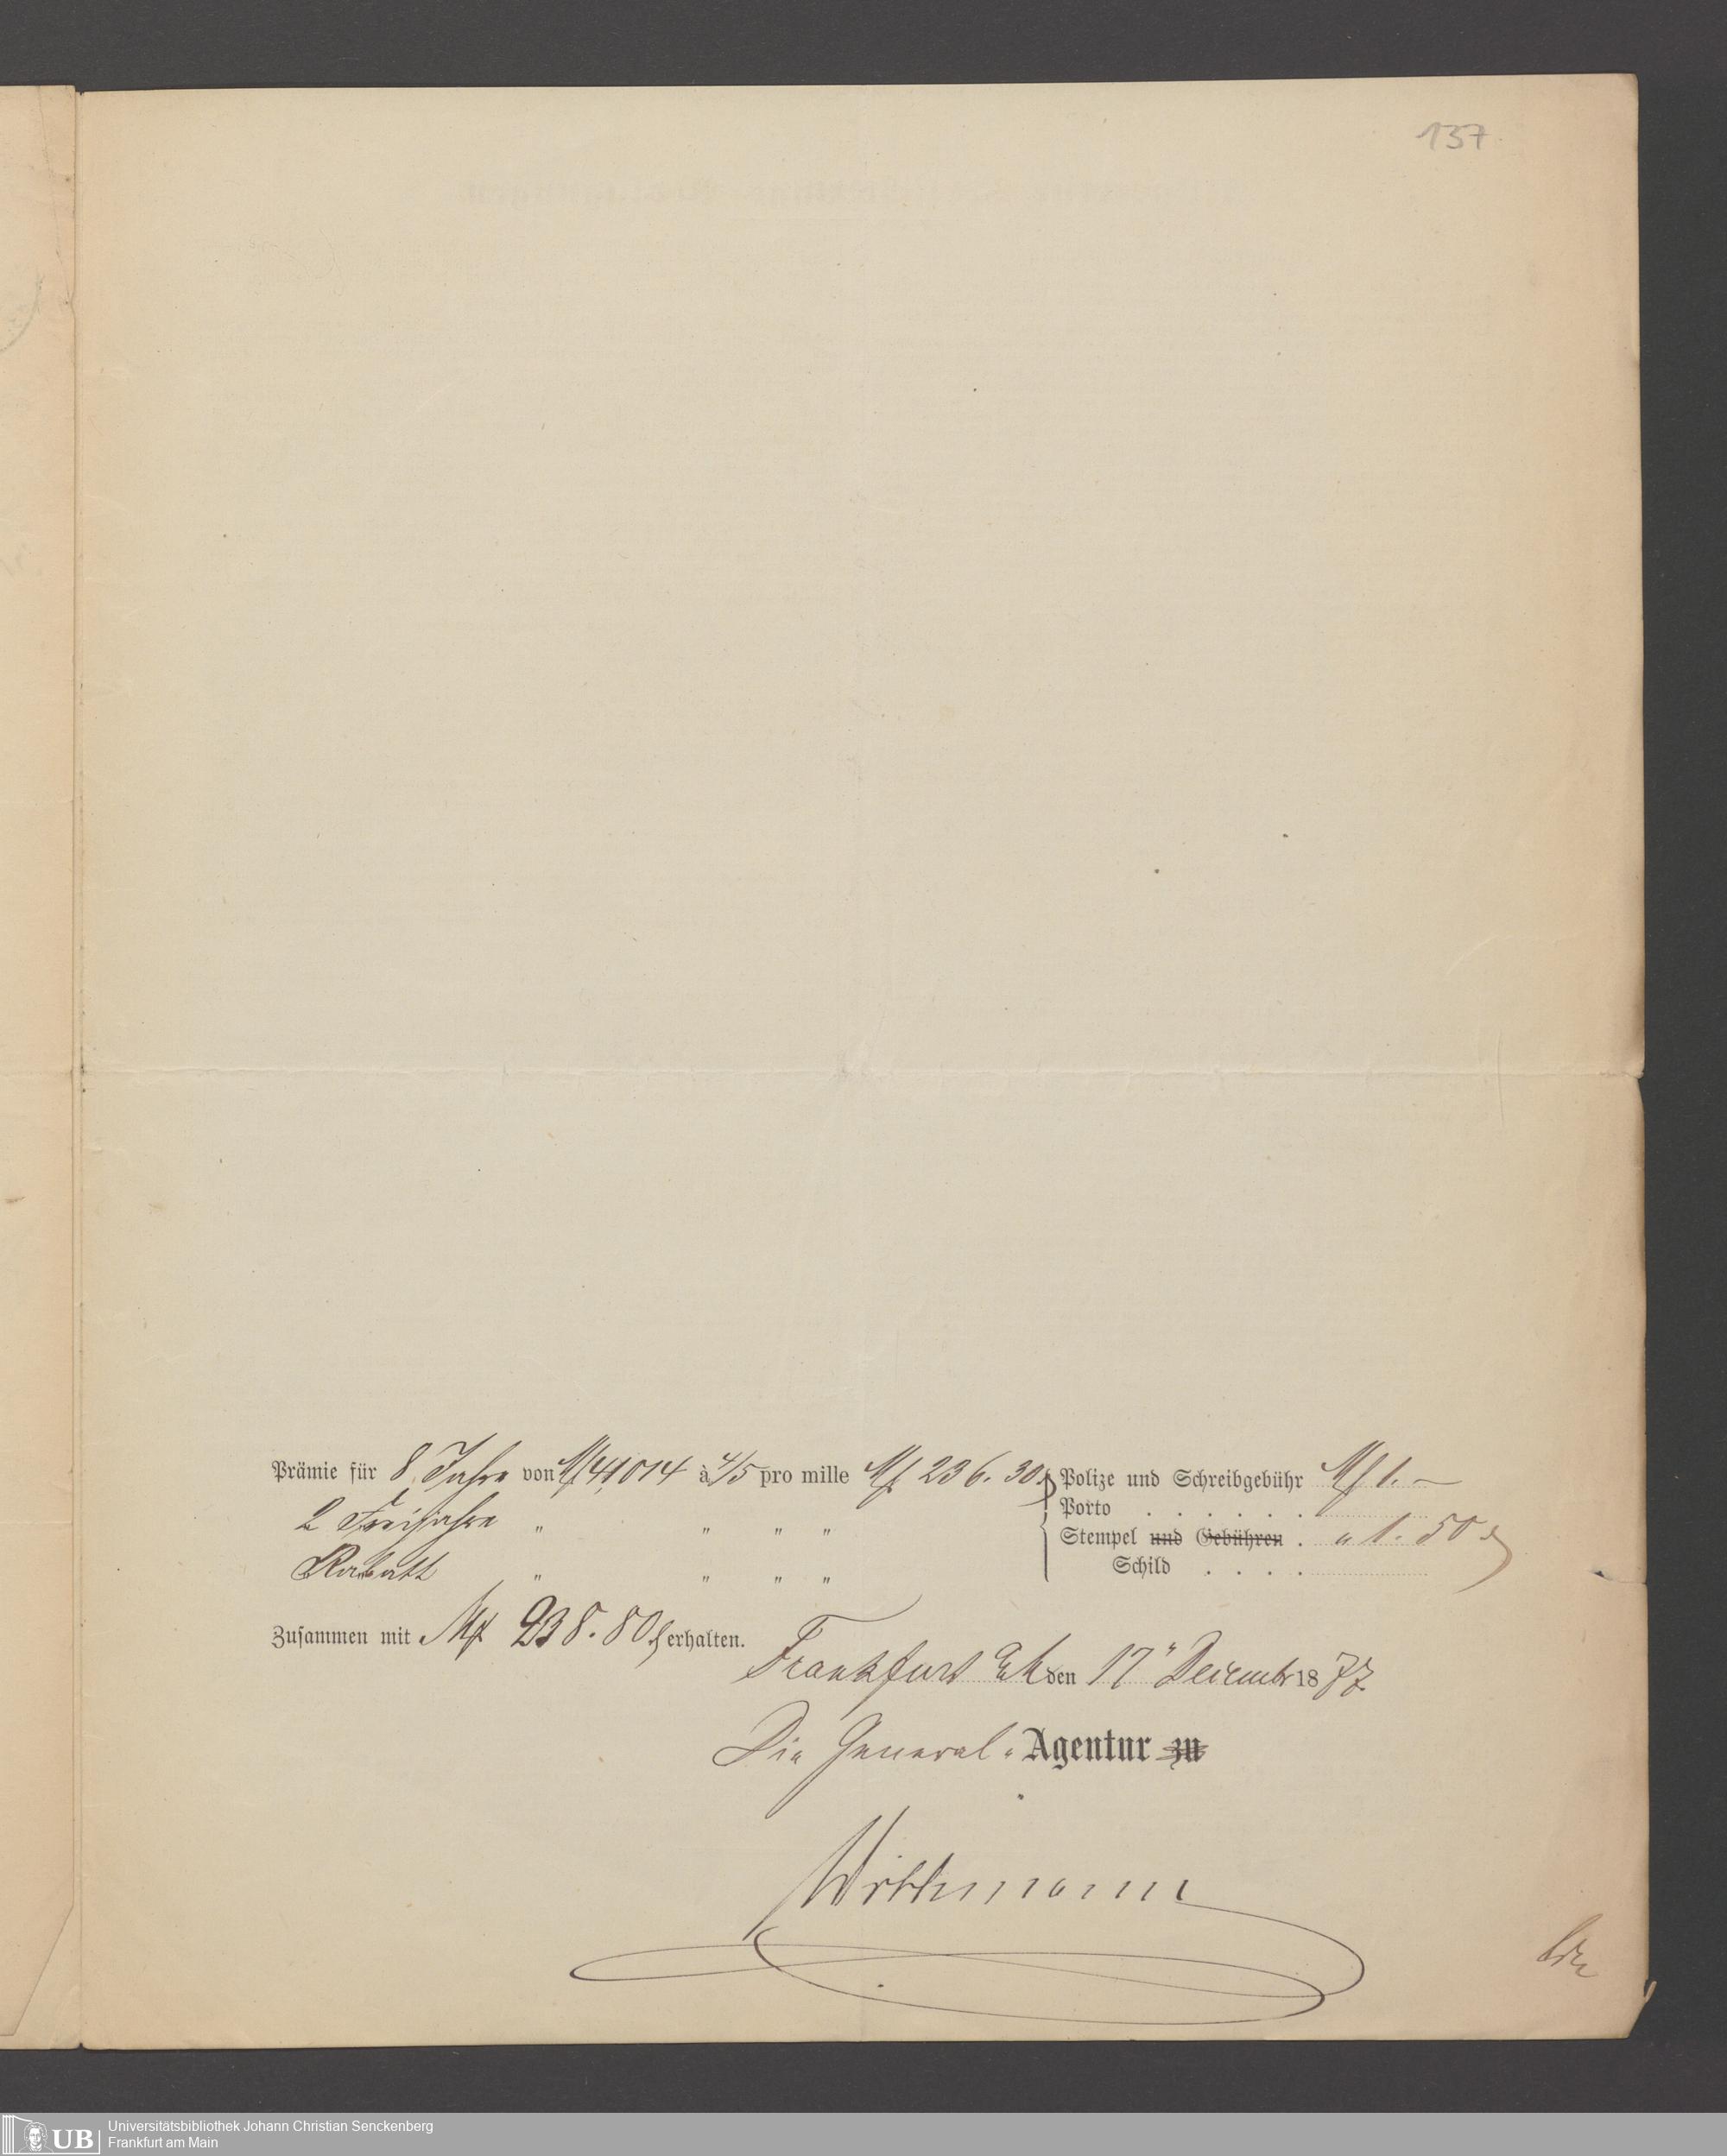 137
Prämie für 8 Jahre von M 41014 à 4/5 pro mille M 236.30 Polize und Schreibgebühr M 1.—
Porto . . . . . .
2 Freijahre " " " " Stempel und Gebühren . " 1.50
Rabatt " " " " Schild . . . .
Zusammen mit M 238.80 erhalten.
Frankfurt a/M den 17" Decembr 1877
Die General-Agentur zu
Wittmann
UB Universitätsbibliothek Johann Christian Senckenberg
Frankfurt am Main